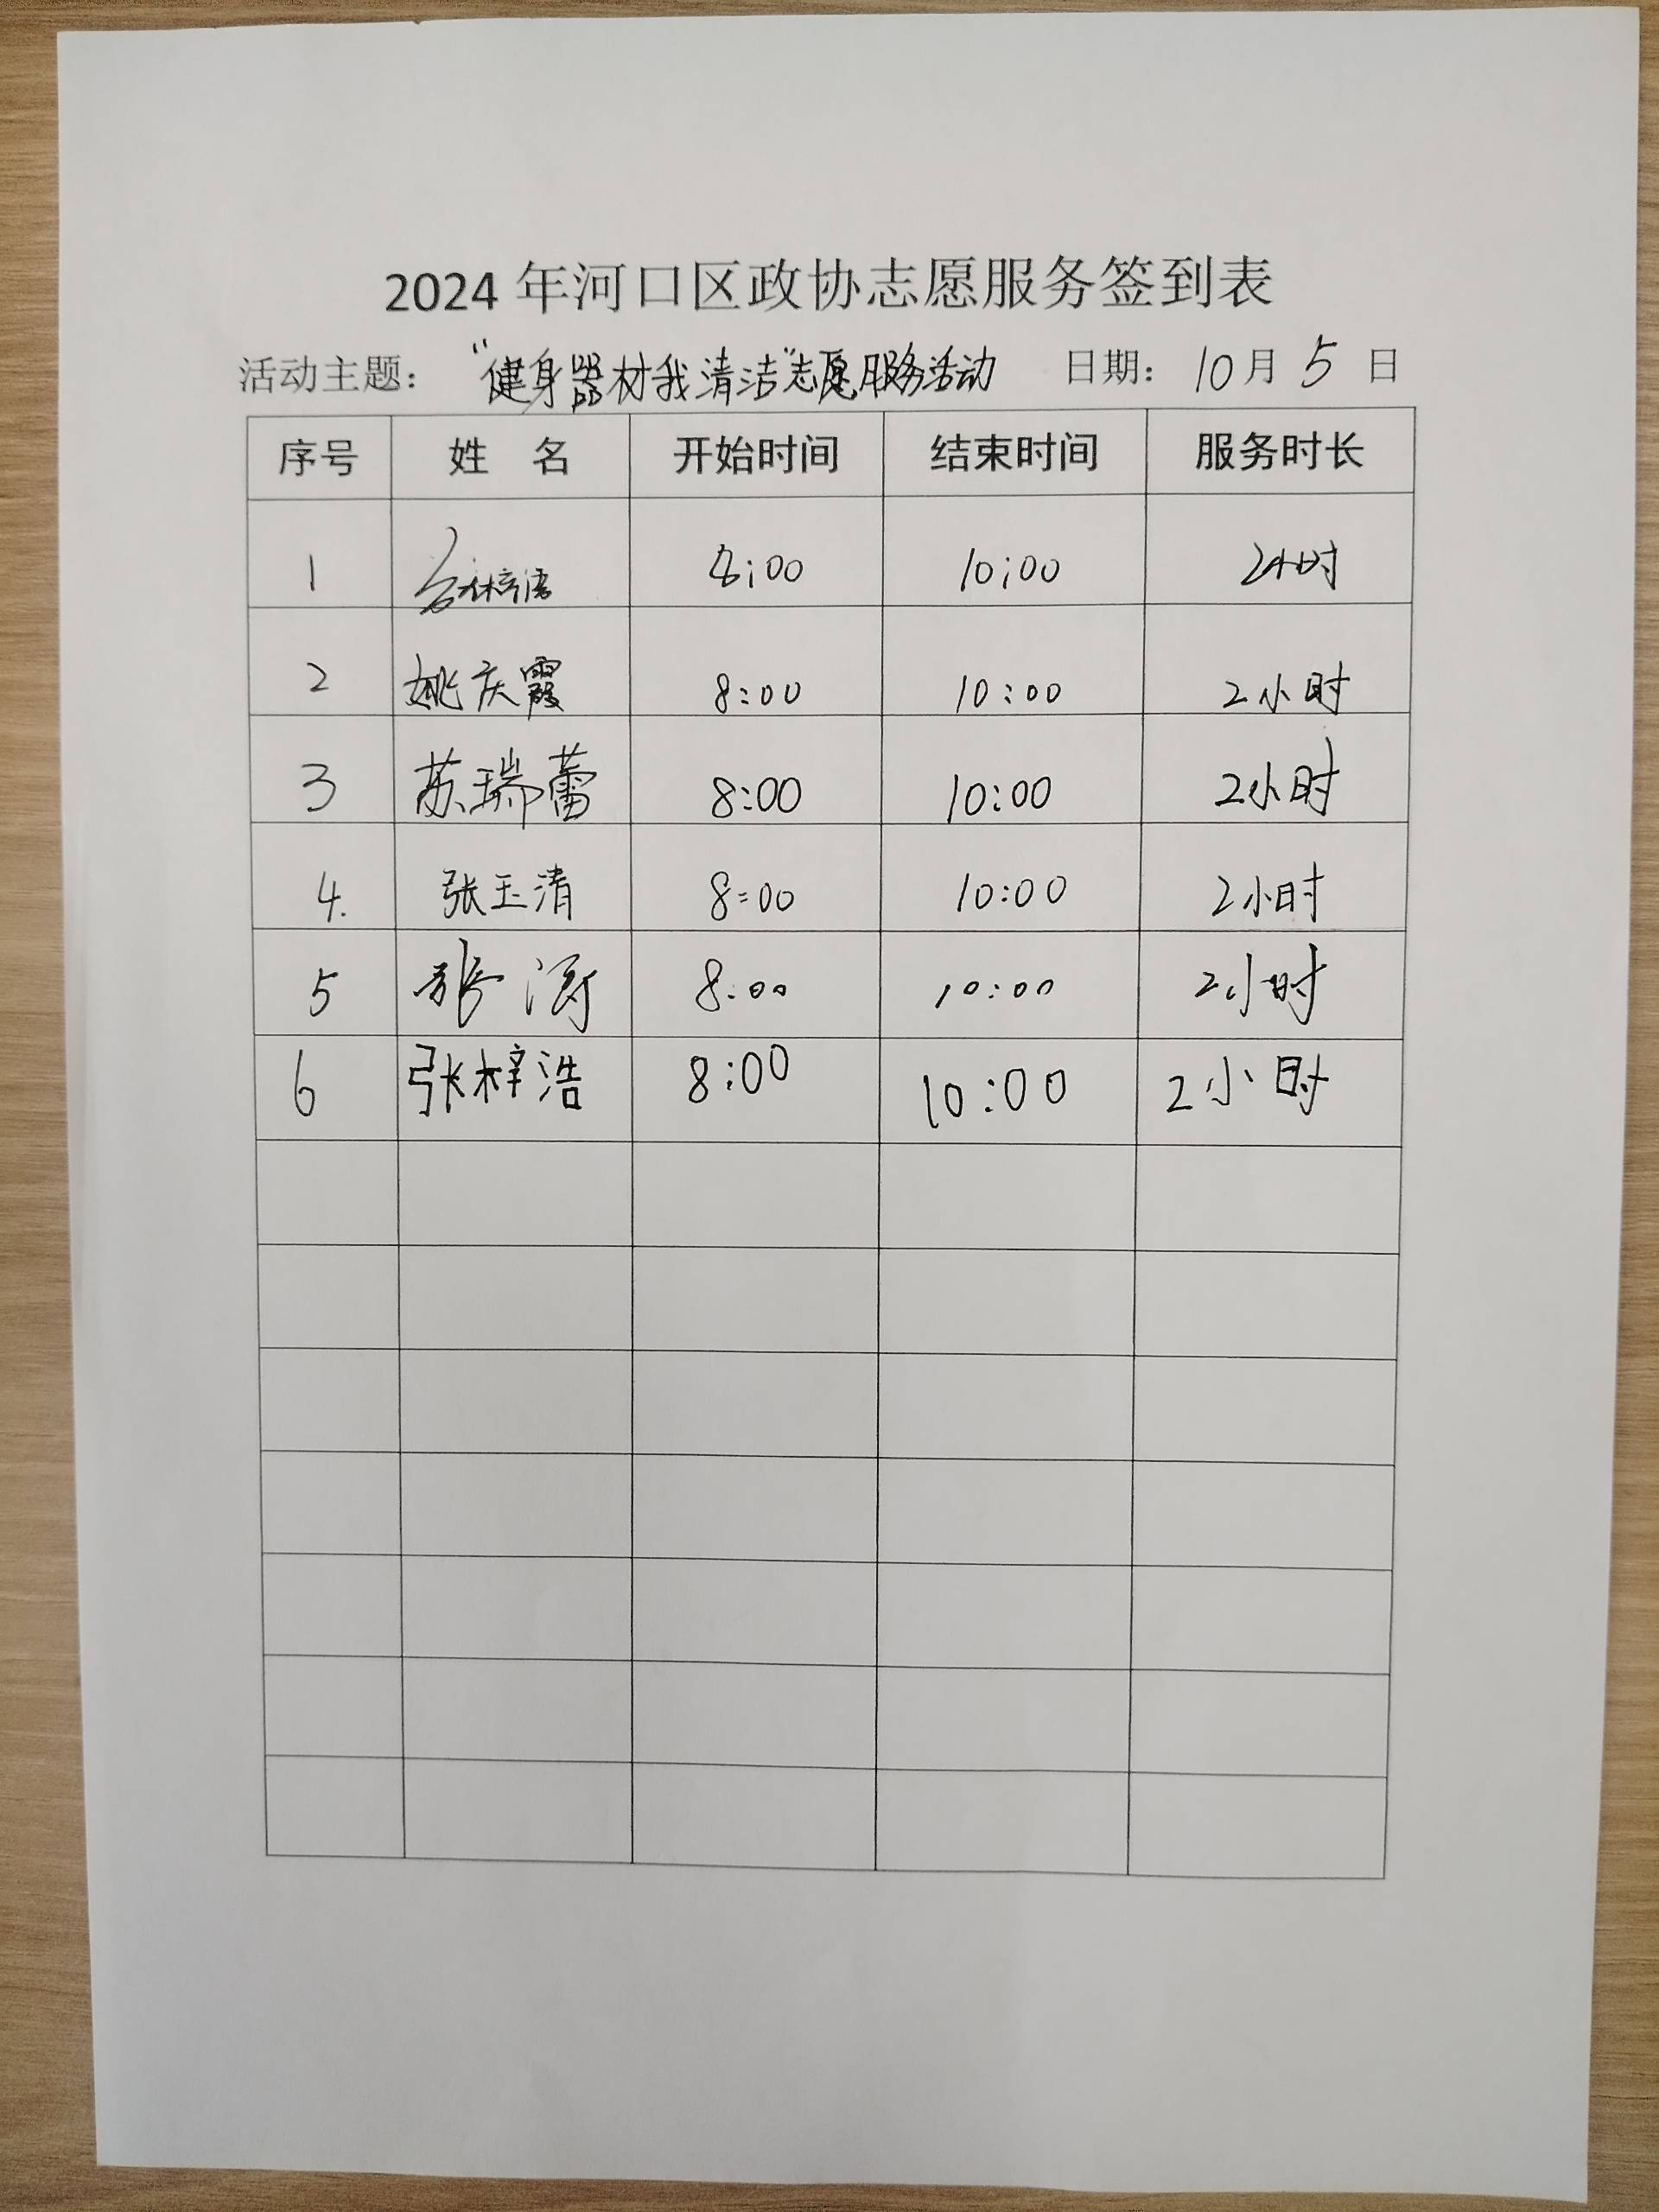 2024 年河口区政协志愿服务签到表
活动主题： “健身器材我清洁”志愿服务活动 日期： 10月 5 日
序号 姓 名 开始时间 结束时间 服务时长
1 8:00 10:00 2小时
2 姚庆霞 8:00 10:00 2小时
3 苏瑞蕾 8:00 10:00 2小时
4. 张玉清 8:00 10:00 2小时
5 张涛 8:00 10:00 2小时
6 张梓浩 8:00 10:00 2小时